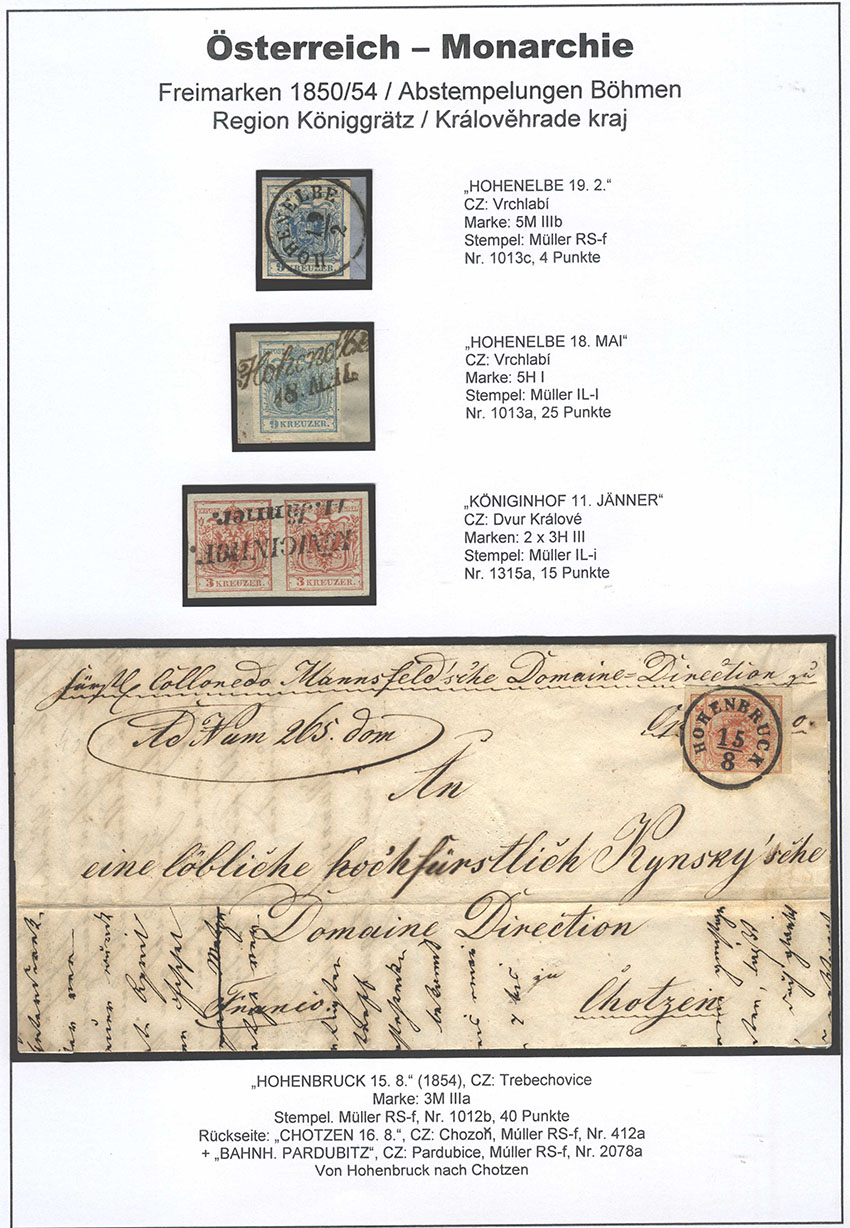 Österreich – Monarchie
Freimarken 1850/54 / Abstempelungen Böhmen
Region Königgrätz / Královĕhrade kraj
HOHENELBE
19
2
9 KREUZER.
„HOHENELBE 19. 2.“
CZ: Vrchlabí
Marke: 5M IIIb
Stempel: Müller RS-f
Nr. 1013c, 4 Punkte
Hohenelbe
18. MAI.
9 KREUZER.
„HOHENELBE 18. MAI“
CZ: Vrchlabí
Marke: 5H I
Stempel: Müller IL-I
Nr. 1013a, 25 Punkte
11. Jänner.
KÖNIGINHOF.
3 KREUZER. 3 KREUZER.
„KÖNIGINHOF 11. JÄNNER“
CZ: Dvur Králové
Marken: 2 x 3H III
Stempel: Müller IL-i
Nr. 1315a, 15 Punkte
fürstl Colloredo Mannsfeld'sche Domaine-Direction zu
Ad Num 265. dom
HOHENBRUCK
15
8
An
eine löbliche hochfürstlich Kynsky'sche
Domaine Direction
Franco
zu
Chotzen
„HOHENBRUCK 15. 8.“ (1854), CZ: Trebechovice
Marke: 3M IIIa
Stempel. Müller RS-f, Nr. 1012b, 40 Punkte
Rückseite: „CHOTZEN 16. 8.“, CZ: Chozoň, Múller RS-f, Nr. 412a
+ „BAHNH. PARDUBITZ“, CZ: Pardubice, Müller RS-f, Nr. 2078a
Von Hohenbruck nach Chotzen